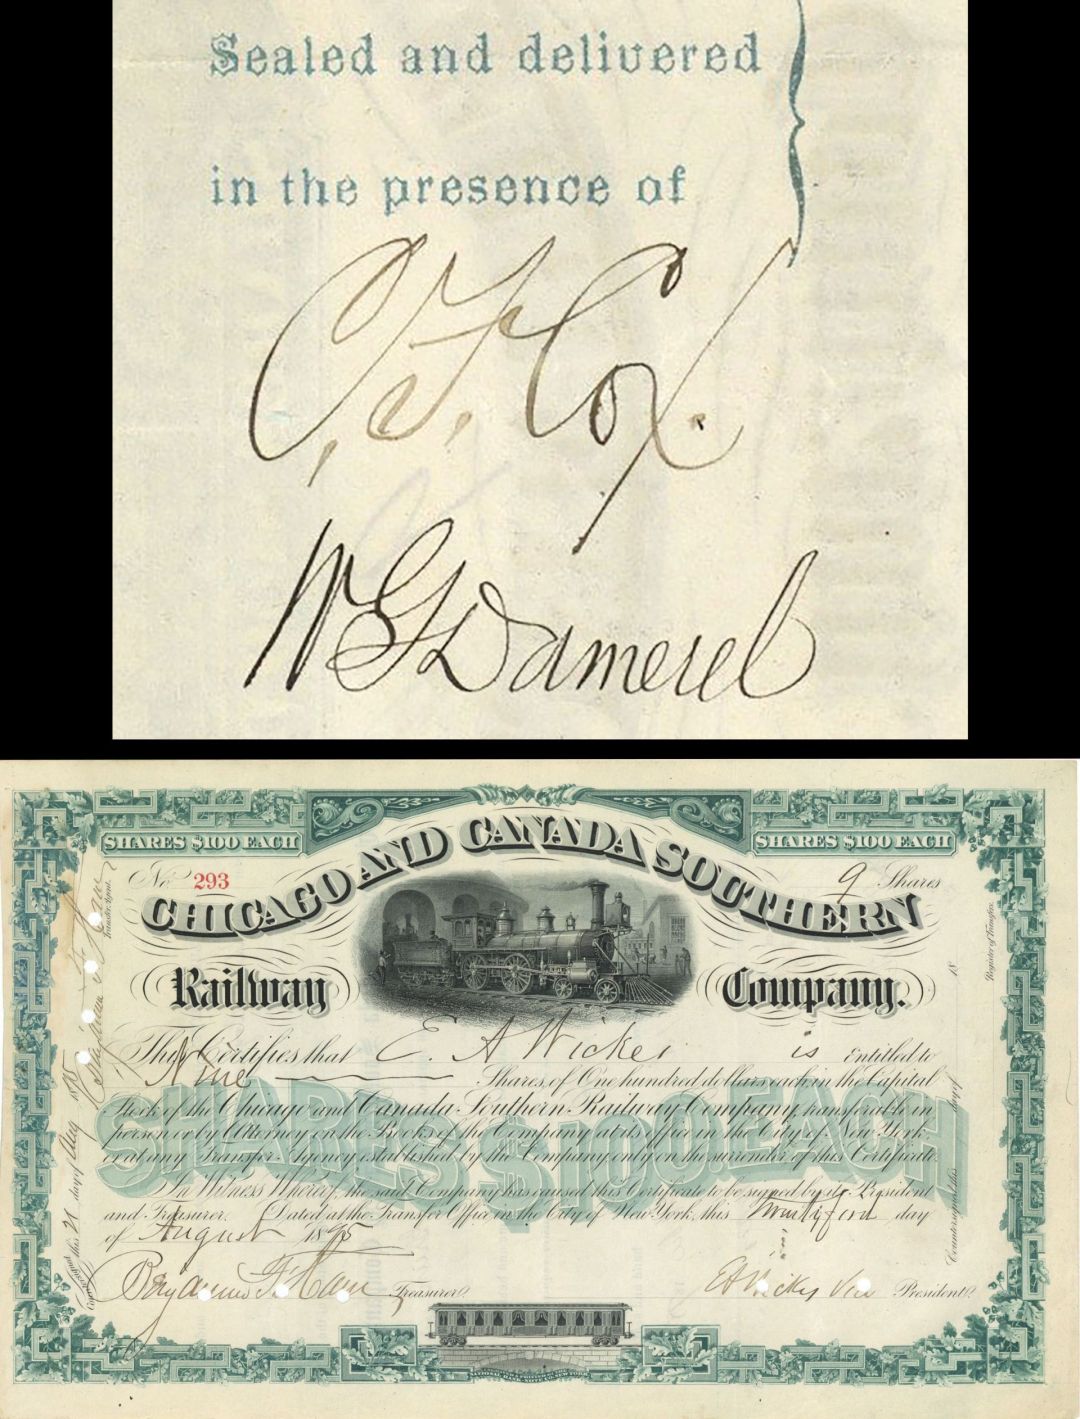 Sealed and delivered
in the presence of
C. F. Cox.
W G Damerel
SHARES $100 EACH
SHARES $100 EACH
No 293
9 Shares
CHICAGO AND CANADA SOUTHERN
Railway Company.
This Certifies that E. A Wicker is Entitled to
Nine Shares, of One hundred dollars each, in the Capital
Stock of the Chicago and Canada Southern Railway Company, transferable in
person or by Attorney on the Books of the Company at its office in the City of New York
or at any Transfer Agency established by the Company only on the surrender of this Certificate
SHARES $100. EACH
In Witness Whereof, the said Company has caused this Certificate to be signed by its President
and Treasurer. Dated at the Transfer Office in the City of New York, this day
of August 1875
Treasurer.
Vice President.
Countersigned this 21 day of Aug 1875
Transfer Agent.
Countersigned this day of 18
Register of Transfers.